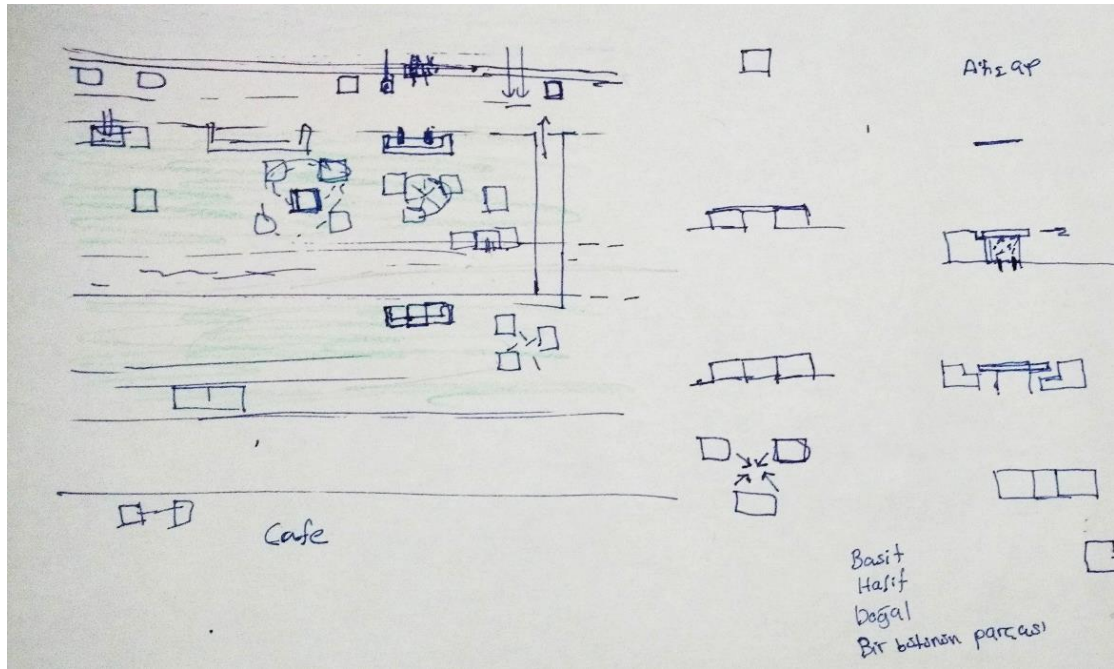 Ahşap
Cafe
Basit
Hafif
Doğal
Bir bütünün parçası